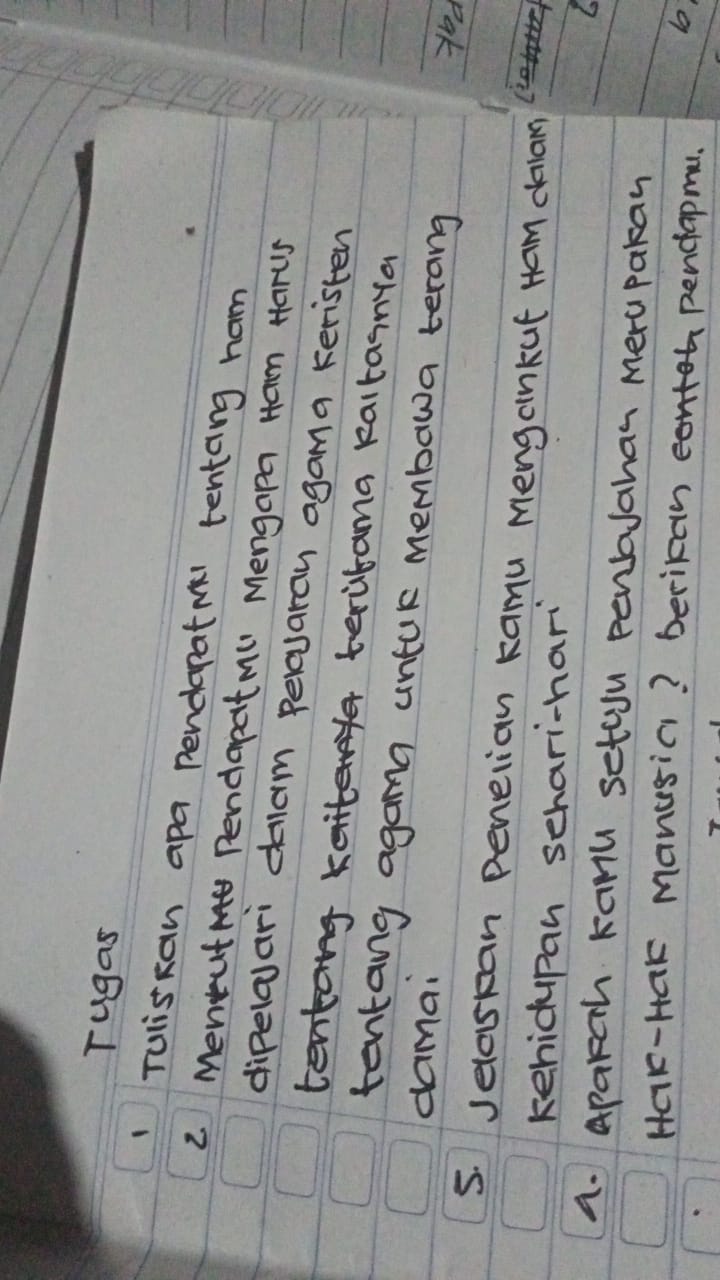 Tugas
1 Tuliskan apa Pendapatmu tentang ham
2 Menrut mu Pendapatmu Mengapa Ham Harus
dipelajari dalam pelajaran agama Keristen
tentang kaitanya terutama kaitannya
tentang agama untuk Membawa terang
damai
3. Jelaskan Penelian kamu Mengankut HAM dalam
Kehidupan sehari-hari
4. Apakah kamu setuju penjajahan Merupakan
Hak-Hak Manusia? berikan contoh pendapmu.
PaK